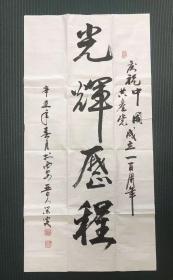 庆祝中国
共产党成立一百周年
光辉历程
辛丑年春月於西安